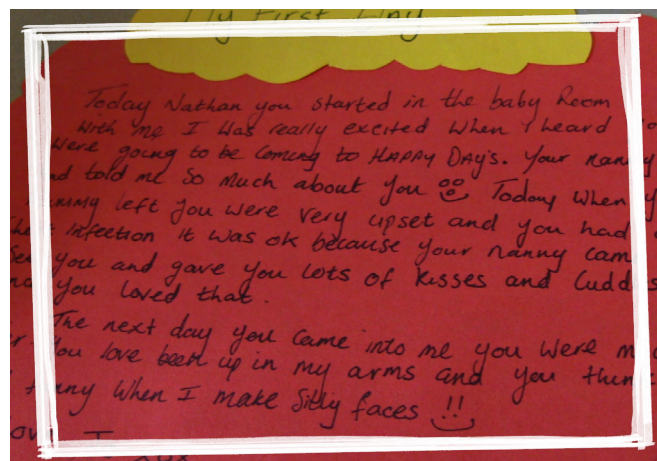 My First Day
Today Nathan you started in the baby Room
with me I was really excited when I heard
were going to be coming to HAPPY DAY'S. Your nanny
told me so much about you Today when
mummy left you were very upset and you had
infection it was ok because your nanny cam
you and gave you lots of kisses and Cuddles
you loved that.
The next day you came into me you were
You love been up in my arms and you think
funny when I make silly faces !!
xox